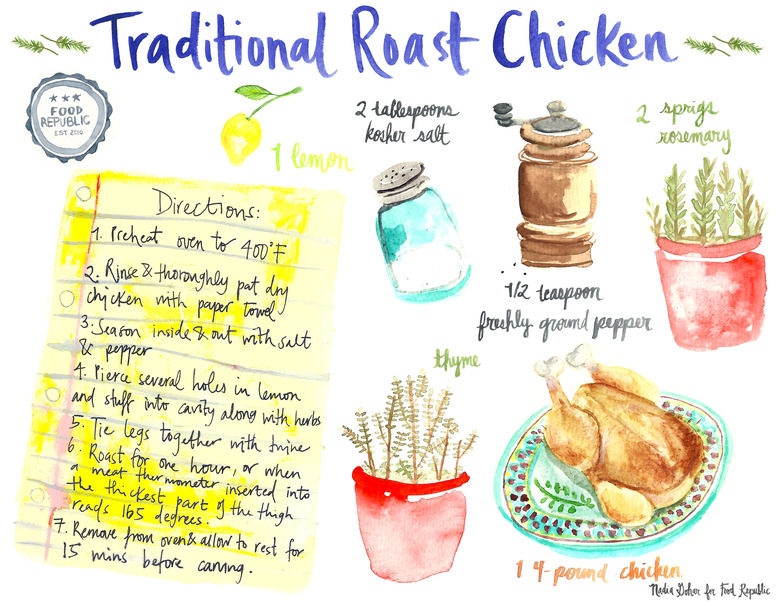 Traditional Roast Chicken
FOOD
REPUBLIC
EST 2010
1 lemon
2 tablespoons
kosher salt
2 sprigs
rosemary
1/2 teaspoon
freshly ground pepper
Directions:
1. Preheat oven to 400°F
2. Rinse & thoroughly pat dry
chicken with paper towel
3. Season inside & out with salt
& pepper
4. Pierce several holes in lemon
and stuff into cavity along with herbs
5. Tie legs together with twine
6. Roast for one hour, or when
a meat thermometer inserted into
the thickest part of the thigh
reads 165 degrees.
7. Remove from oven & allow to rest for
15 mins before carving.
thyme
1 4-pound chicken
Nadia for Food Republic